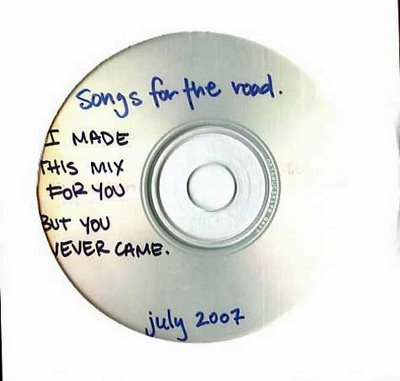 songs for the road.
I MADE
THIS MIX
FOR YOU
BUT YOU
NEVER CAME.
july 2007